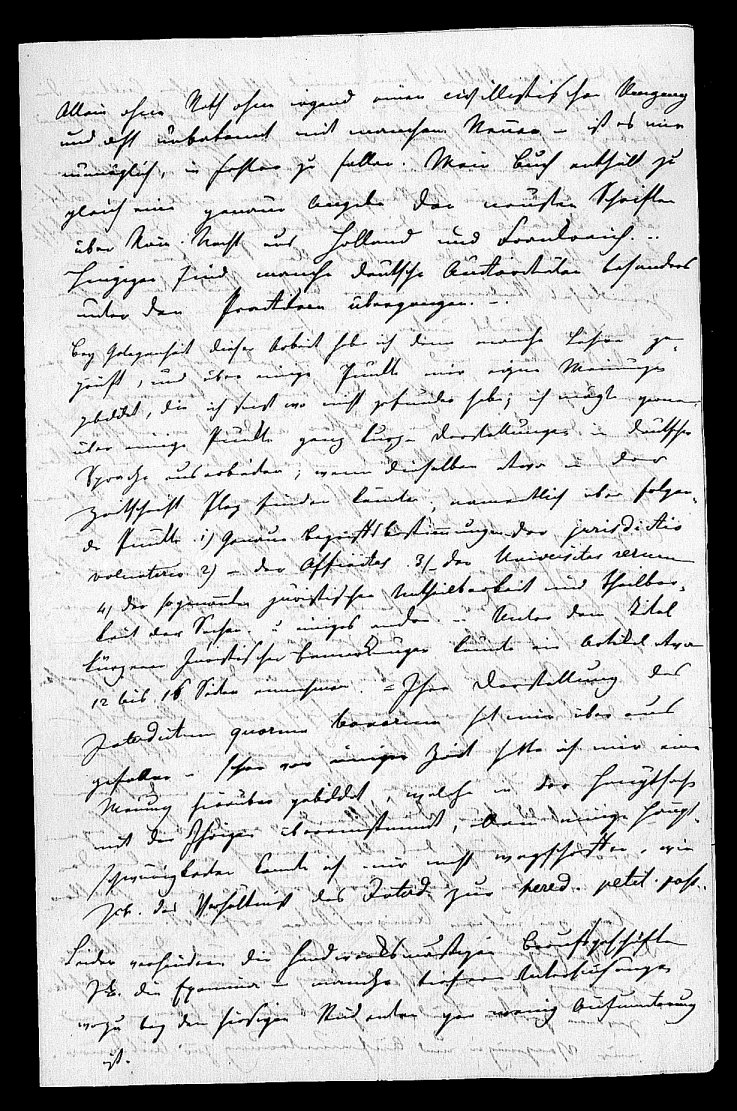 Allein ohne Rath ohne irgend einen civilistischen Umgang
und oft unbekannt mit manchem Neuen – ist es mir
unmöglich, in Fehler zu fallen. Mein Buch enthält zu
gleich eine genaue Angabe der neusten Schriften
über Röm. Recht aus Holland und Frankreich. ..
Hingegen sind manche deutsche Autoritäten besonders
unter den Practikern übergangen. –.
Bey Gelegenheit dieser Arbeit hab ich denn manche Lehren ge-
prüft, und über einige Punkte mir eigne Meinungen
gebildet, die ich sonst wo nicht gefunden habe; ich mögte gerne
über einige Punkte ganz kurze Darstellungen in deutscher
Sprache ausarbeiten, wenn dieselben etwa in der
Zeitschrift Plaz finden könnten, namentlich über folgen-
de Punkte 1) Genaue Begriffsbestimmungen der jurisdictio
voluntaria 2) – der Affinitas 3) – der Universitas rerum
4) der sogenannten juristischen Untheilbarkeit und Theilbar-
keit der Sachen u einiges andre. – Unter dem Titel
kürzere juristische Bemerkungen könnte ein Artikel etwa
12 bis 16 Seiten einnehmen. – Ihre Darstellung des
Interdictum quorum bonorum hat mir über aus
gefallen – schon vor einiger Zeit hatte ich mir eine
Meinung hierüber gebildet, welche in der Hauptsache
mit der Ihrigen übereinstimmt, allein einige Haupt-
schwierigkeiten konnte ich mir nicht wegschaffen, wie
z.b. das Verhältniß des Interd. zur hered. petit. poss..
Leider verhindern die handwerksmässigen Berufsgeschäfte
z.B. die Examina – manche tiefere Untersuchungen
wozu bey den hiesigen Studenten gar wenig Aufmunterung
ist.